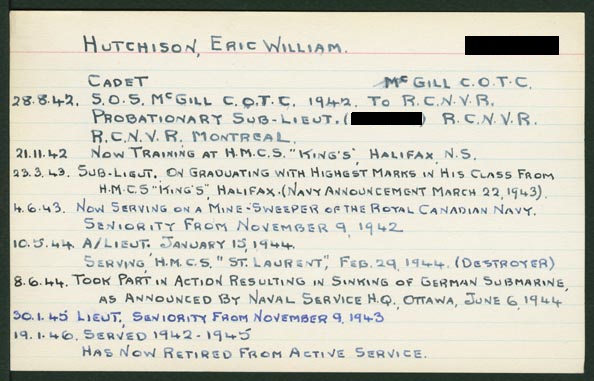 HUTCHISON, ERIC WILLIAM.
CADET McGILL C.O.T.C.
28.8.42. S.O.S. McGILL C.O.T.C. 1942. TO R.C.N.V.R.
PROBATIONARY SUB-LIEUT. ( ) R.C.N.V.R.
R.C.N.V.R. MONTREAL.
21.11.42 NOW TRAINING AT H.M.C.S. "KING'S", HALIFAX, N.S.
23.3.43. SUB-LIEUT. ON GRADUATING WITH HIGHEST MARKS IN HIS CLASS FROM
H.M.C.S "KING'S", HALIFAX. (NAVY ANNOUNCEMENT MARCH 22, 1943).
4.6.43. NOW SERVING ON A MINE-SWEEPER OF THE ROYAL CANADIAN NAVY.
SENIORITY FROM NOVEMBER 9, 1942
10.5.44. A/LIEUT. JANUARY 15, 1944.
SERVING, H.M.C.S. "ST. LAURENT", FEB. 29, 1944. (DESTROYER)
8.6.44. TOOK PART IN ACTION RESULTING IN SINKING OF GERMAN SUBMARINE,
AS ANNOUNCED BY NAVAL SERVICE H.Q., OTTAWA, JUNE 6, 1944
30.1.45 LIEUT., SENIORITY FROM NOVEMBER 9, 1943
19.1.46. SERVED 1942-1945
HAS NOW RETIRED FROM ACTIVE SERVICE.